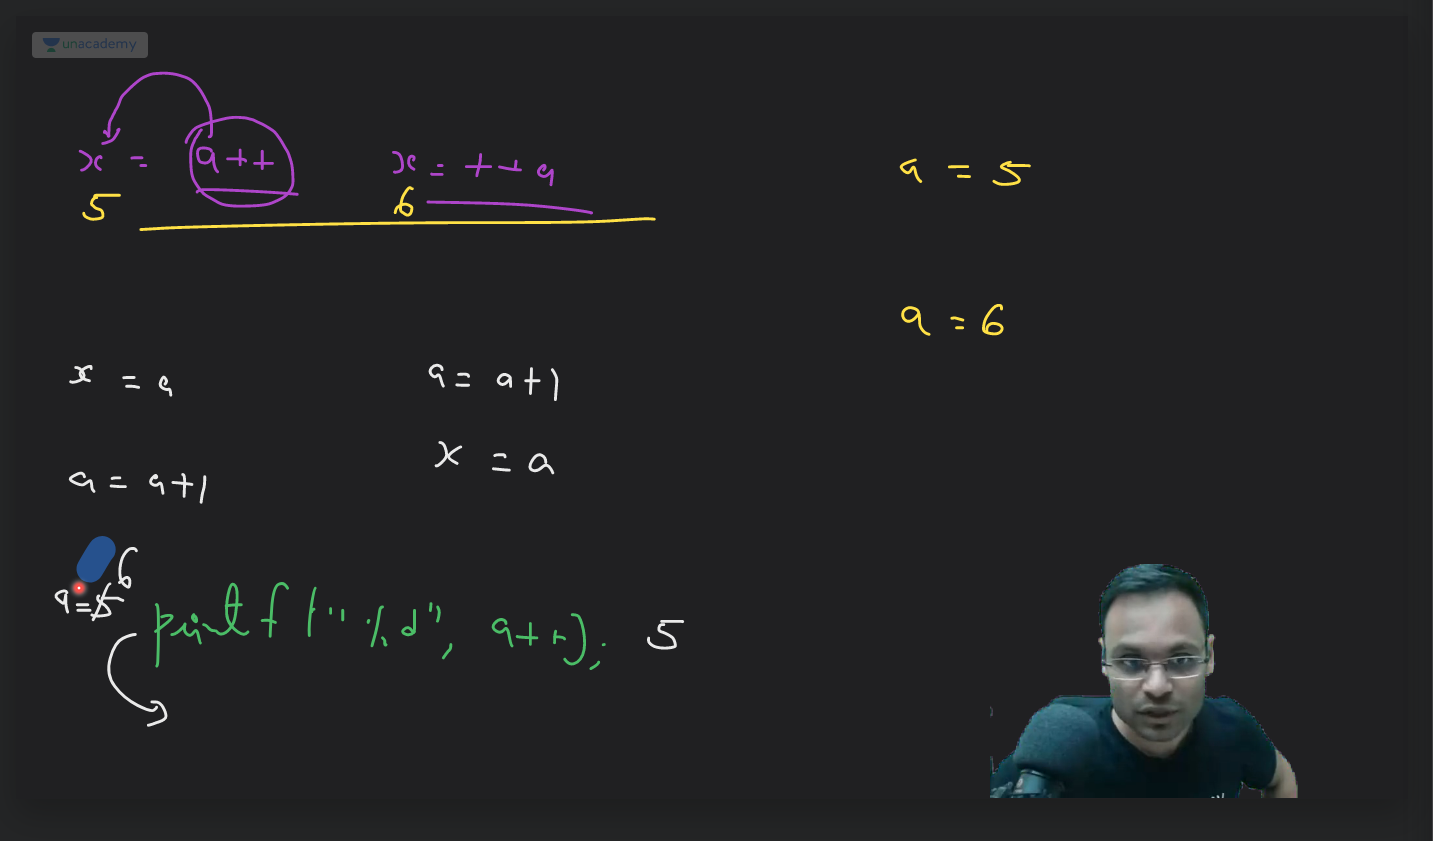 unacademy
x = a++
x = ++a
a = 5
5
6
a = 6
x = a
a = a+1
a = a+1
x = a
6
a=5
printf("%d", a++);
5